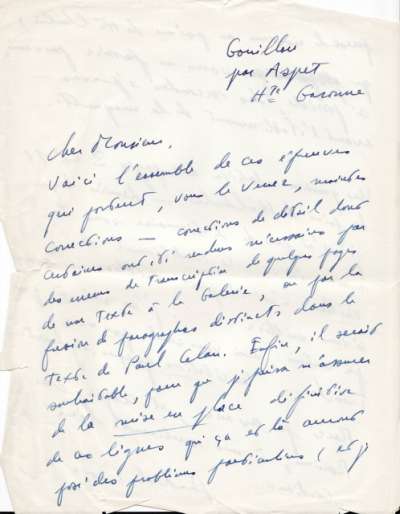 Gouillou
par Aspet
Hte Garonne
Cher Monsieur,
Voici l'ensemble de ces épreuves
qui portent, vous le verrez, maintes
corrections — corrections de détail dont
certaines ont été rendues nécessaires par
des erreurs de transcription de quelques pages
de mon texte à la Galerie, ou par la
fusion de paragraphes distincts dans le
texte de Paul Celan. Enfin, il serait
souhaitable, pour que je puisse m'assurer
de la mise en place définitive
de ces lignes qui çà et là auront
posé des problèmes particuliers (et j